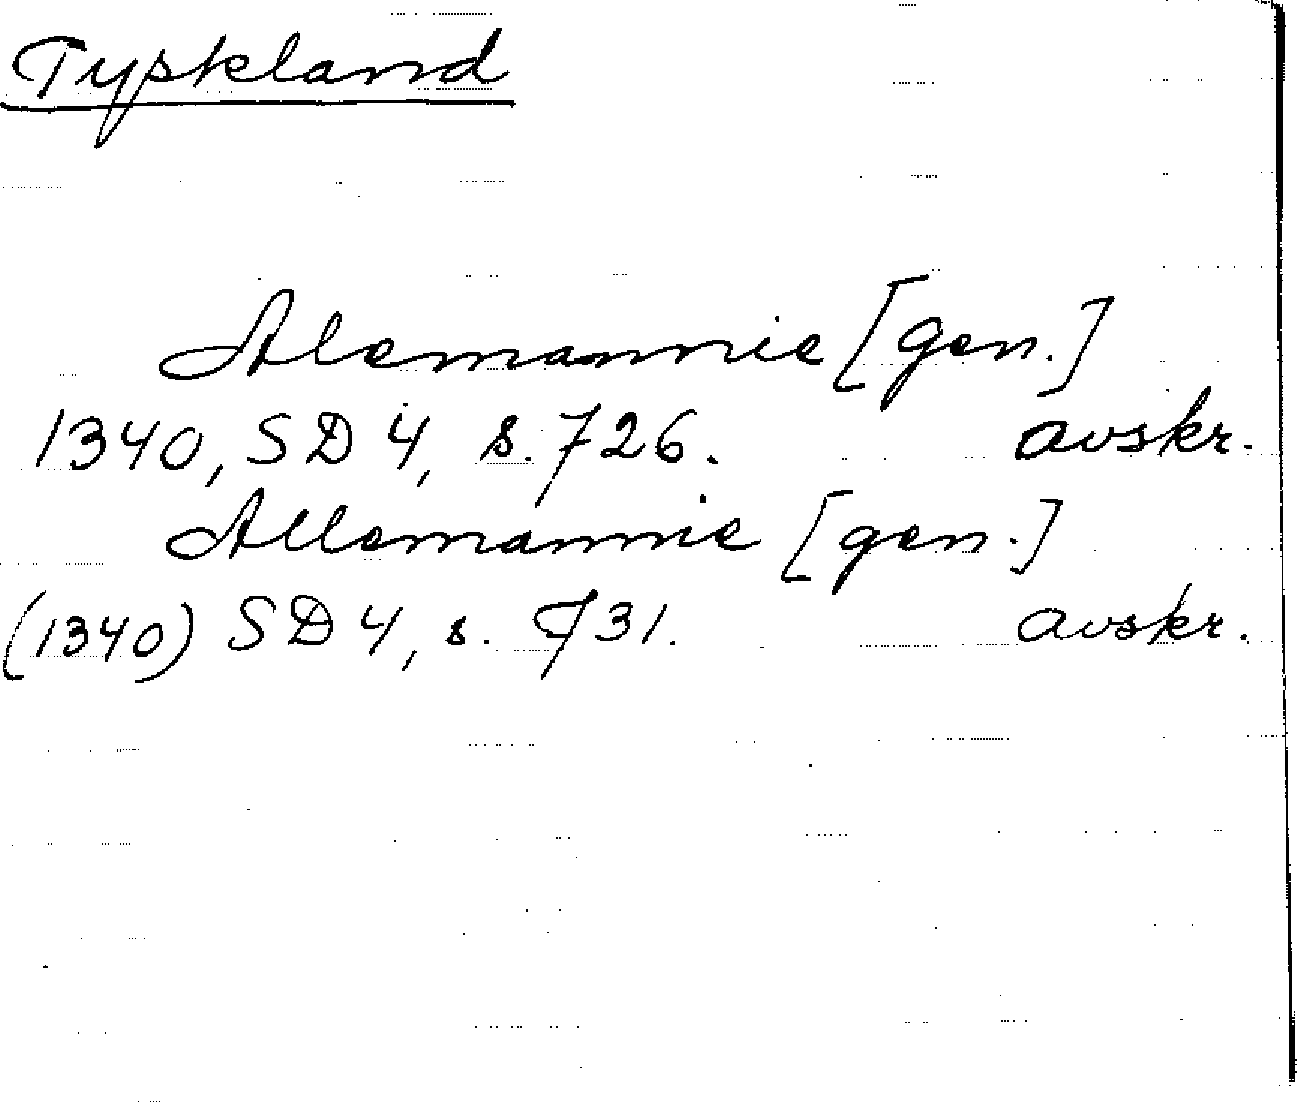 Tyskland
Alemannie [gen.]
1340, SD 4, s. 726. avskr.
Allemannie [gen.]
(1340) SD 4, s. 731. avskr.